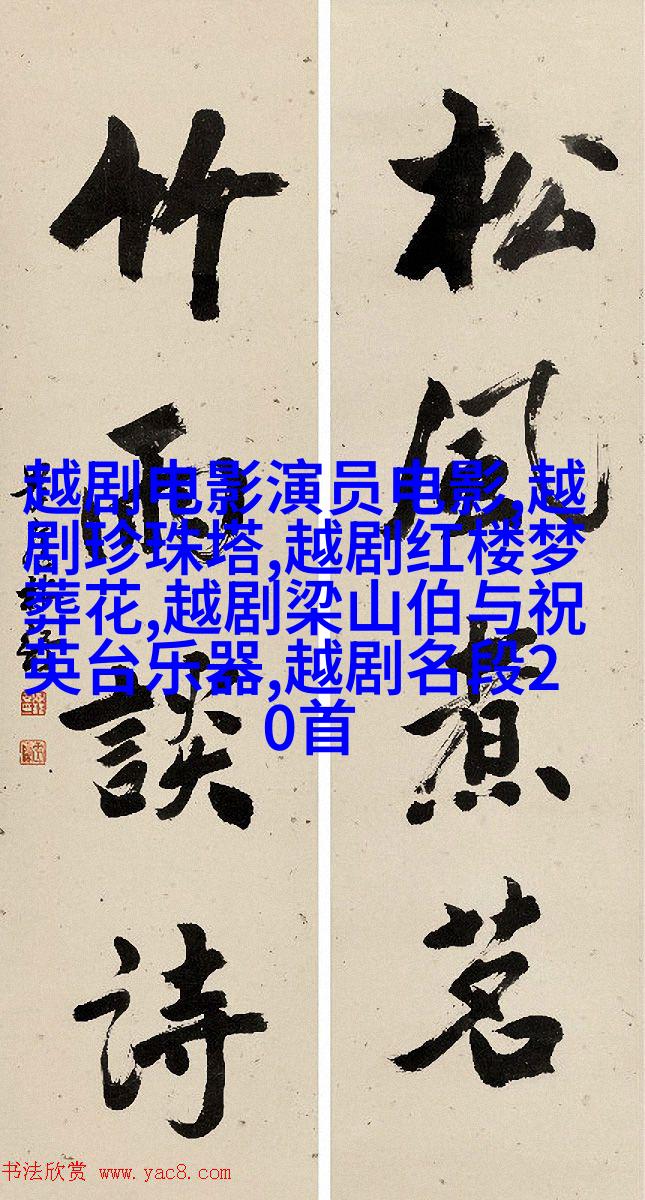 松風煮茗
竹雨談詩
越剧电影演员电影,越
剧珍珠塔,越剧红楼梦
葬花,越剧梁山伯与祝
英台乐器,越剧名段2
0首
书法欣赏 www.yac8.com